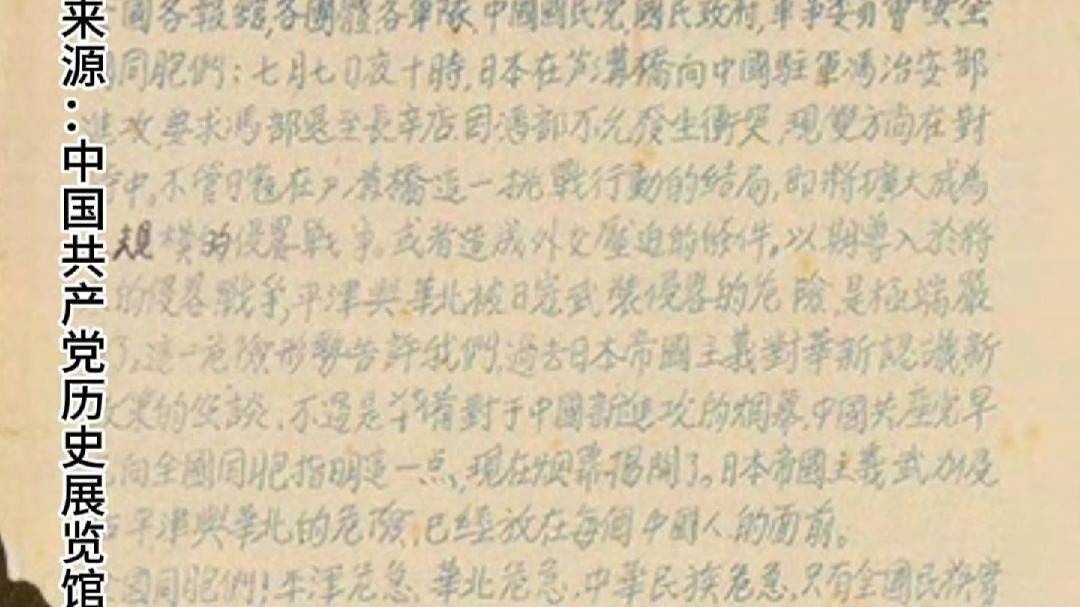 来源：中国共产党历史展览馆
國各報館,各團體,各軍隊,中國國民党,國民政府,軍事委員會
同胞們：七月七日夜十時,日本在芦溝橋向中國駐軍馮治安部
進攻,要求馮部退至長辛店,因馮部不允發生衝突,現雙方尚在對
中,不管日寇在芦溝橋這一挑戰行動的結局,即將擴大成為
規模的侵畧戰爭,或者造成外交壓迫的條件,以期導入於將
的侵畧戰爭,平津與華北被日寇武裝侵畧的危險,是極端嚴
了,這一危險形勢告訴我們,過去日本帝國主義對華新認識,新
政策的空談,不過是準備對于中國新進攻的烟幕,中國共產党早
向全國同胞指明這一点,現在烟幕揭開了。日本帝國主義武力侵
平津與華北的危險,已經放在每個中國人的面前。
國同胞們!平津危急,華北危急,中華民族危急,只有全國民族實